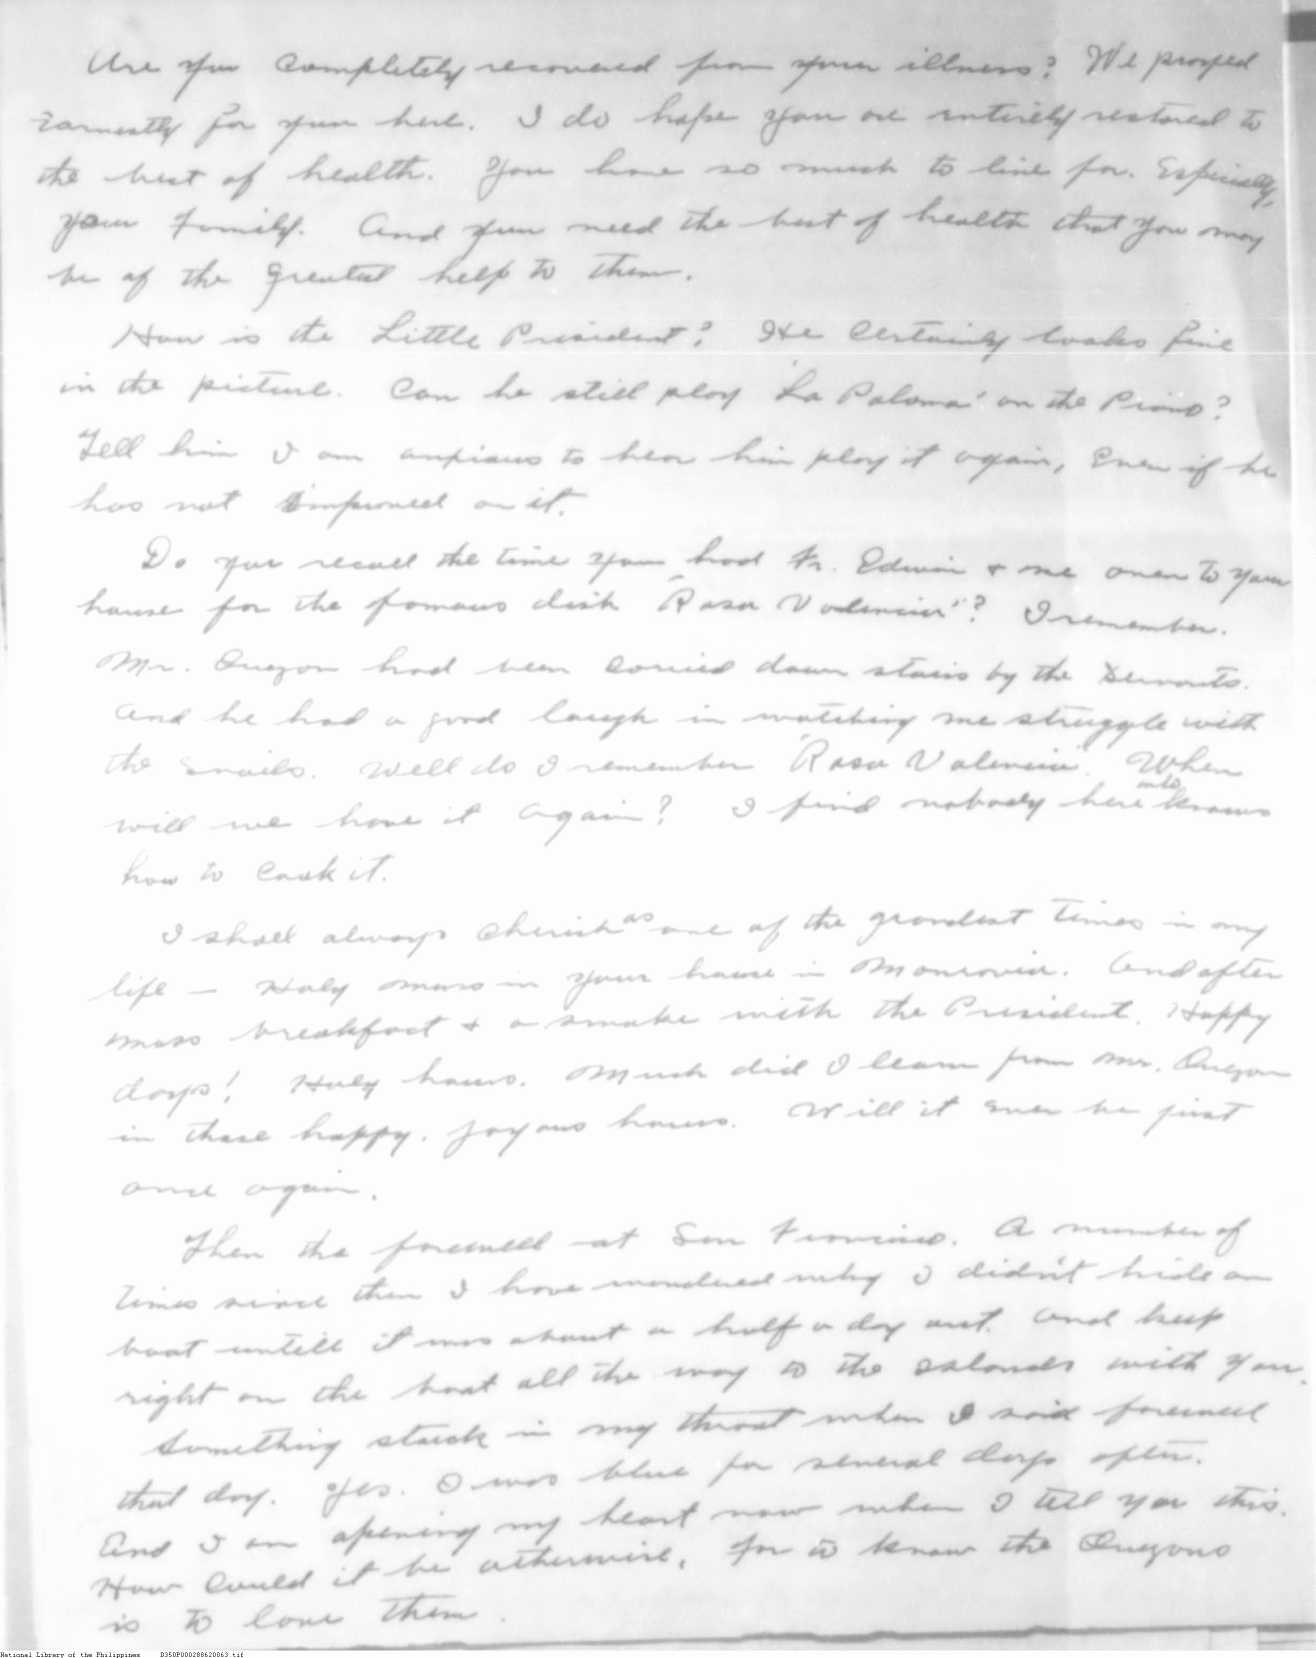 Are you completely recovered from your illness? We prayed
earnestly for you here. I do hope you are entirely restored to
the best of health. You have so much to live for. Especially,
your family. And you need the best of health that you may
be of the greatest help to them.
How is the Little President? He certainly looks fine
in the picture. Can he still play 'La Paloma' on the Piano?
Tell him I am anxious to hear him play it again, even if he
has not improved on it.
Do you recall the time you had Fr. Edwin + me over to your
house for the famous dish "Rasa Valencia"? I remember.
Mr. Quezon had been carried down stairs by the servants.
And he had a good laugh in watching me struggle with
the snails. Well do I remember 'Rasa Valencia'. When
will we have it again? I find nobody here who knows
how to cook it.
I shall always cherish as one of the grandest times in my
life — Holy mass in your house in Monrovia. And after
mass breakfast + a smoke with the President. Happy
days! Holy hours. Much did I learn from Mr. Quezon
in those happy, joyous hours. Will it ever be just
once again.
Then the farewell at San Francisco. A number of
times since then I have wondered why I didn't hide on
boat untill it was about a half a day out. And keep
right on the boat all the way to the Islands with you.
Something stuck in my throat when I said farewell
that day. Yes. I was blue for several days after.
And I am opening my heart now when I tell you this.
How could it be otherwise, for to know the Quezons
is to love them.
National Library of the Philippines D350P000288620063.tif